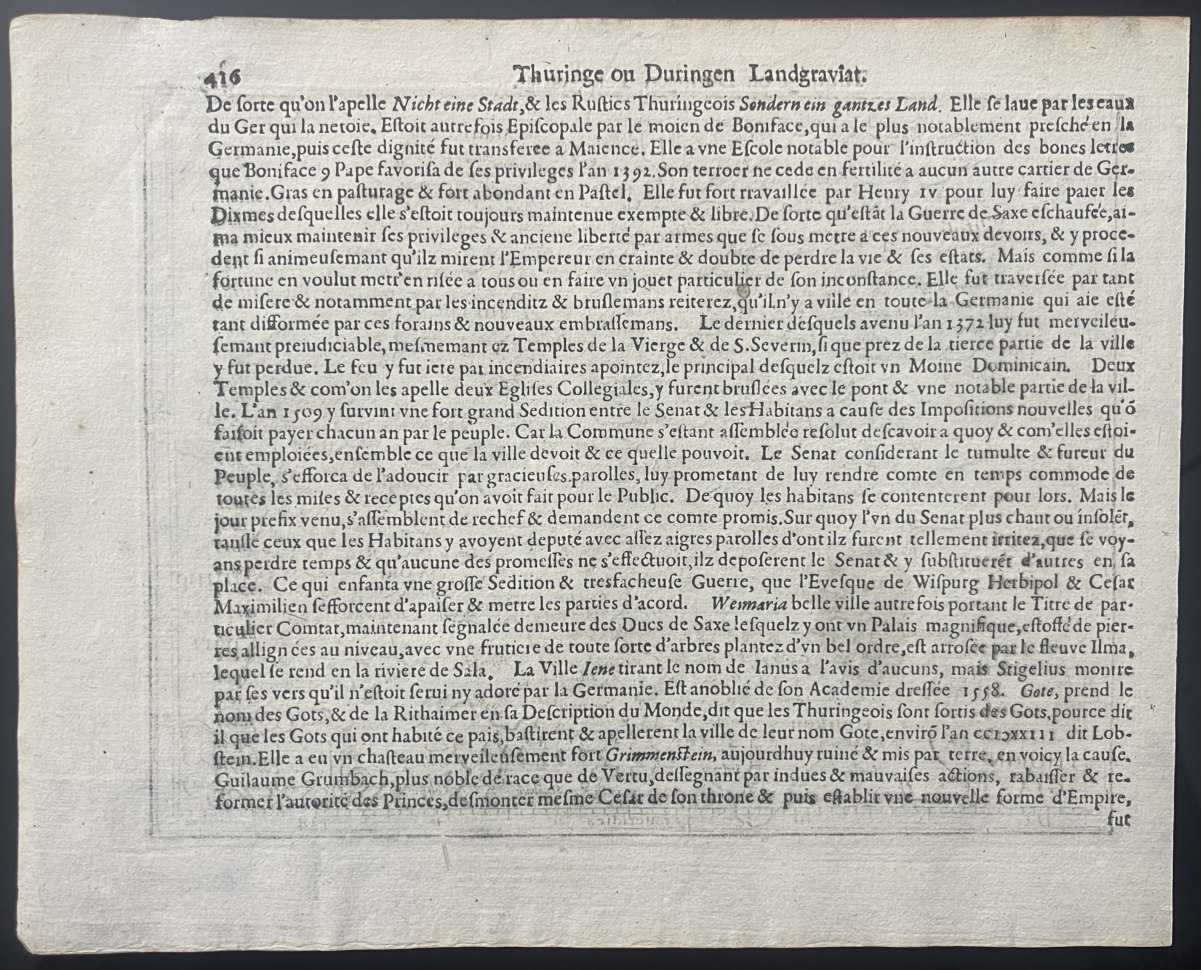 416
Thuringe ou Duringen Landgraviat.
De ſorte qu'on l'apelle Nicht eine Stadt,& les Ruſtics Thuringeois Sondern ein gantzes Land. Elle ſe laue par les eaux
du Ger qui la netoie. Eſtoit autrefois Epiſcopale par le moien de Boniface,qui a le plus notablement preſché en la
Germanie,puis ceſte dignité fut transferée a Maience. Elle a vne Eſcole notable pour l'inſtruction des bones letres
que Boniface 9 Pape favoriſa de ſes privileges l'an 1392. Son terroer ne cede en fertilité a aucun autre cartier de Ger-
manie.Gras en paſturage & fort abondant en Paſtel. Elle fut fort travaillée par Henry IV pour luy faire paier les
Dixmes deſquelles elle s'eſtoit toujours maintenue exempte & libre. De ſorte qu'eſtāt la Guerre de Saxe eſchaufée,ai-
ma mieux maintenir ſes privileges & anciene liberté par armes que ſe ſous metre a ces nouveaux devoirs, & y proce-
dent ſi animeuſemant qu'ilz mirent l'Empereur en crainte & doubte de perdre la vie & ſes eſtats. Mais comme ſi la
fortune en voulut metr'en riſée a tous ou en faire vn jouet particulier de ſon inconſtance. Elle fut traverſée par tant
de miſere & notamment par les incenditz & bruſlemans reiterez,qu'il n'y a ville en toute la Germanie qui aie eſté
tant difformée par ces forains & nouveaux embraſſemans. Le dernier deſquels avenu l'an 1372 luy fut merveileu-
ſemant preiudiciable,meſmemant ez Temples de la Vierge & de S.Severin,ſi que prez de la tierce partie de la ville
y fut perdue. Le feu y fut ieté par incendiaires apointez,le principal deſquelz eſtoit vn Moine Dominicain. Deux
Temples & com'on les apelle deux Egliſes Collegiales,y furent bruſlées avec le pont & vne notable partie de la vil-
le. L'an 1509 y ſurvint vne fort grand Sedition entre le Senat & les Habitans a cauſe des Impoſitions nouvelles qu'ō
faiſoit payer chacun an par le peuple. Car la Commune s'eſtant aſſemblée reſolut deſcavoir a quoy & com'elles eſtoi-
ent emploiées,enſemble ce que la ville devoit & ce quelle pouvoit. Le Senat conſiderant le tumulte & fureur du
Peuple, s'efforca de l'adoucir par gracieuſes parolles, luy prometant de luy rendre comte en temps commode de
toutes les miſes & receptes qu'on avoit fait pour le Public. De quoy les habitans ſe contenterent pour lors. Mais le
jour prefix venu,s'aſſemblent de rechef & demandent ce comte promis. Sur quoy l'vn du Senat plus chaut ou inſolēt,
tanſle ceux que les Habitans y avoyent deputé avec aſſez aigres parolles d'ont ilz furent tellement irritez,que ſe voy-
ans perdre temps & qu'aucune des promeſſes ne s'effectuoit,ilz depoſerent le Senat & y ſubſtituerēt d'autres en ſa
place. Ce qui enfanta vne groſſe Sedition & tresfacheuſe Guerre, que l'Eveſque de Wiſpurg Herbipol & Ceſar
Maximilien ſefforcent d'apaiſer & metre les parties d'acord. Weimaria belle ville autrefois portant le Titre de par-
ticulier Comtat,maintenant ſegnalée demeure des Ducs de Saxe leſquelz y ont vn Palais magnifique,eſtoffé de pier-
res allignées au niveau,avec vne fruticie de toute ſorte d'arbres plantez d'vn bel ordre,eſt arroſée par le fleuve Ilma,
lequel ſe rend en la riviere de Sala. La Ville Iene tirant le nom de Ianus a l'avis d'aucuns, mais Stigelius montre
par ſes vers qu'il n'eſtoit ſerui ny adoré par la Germanie. Eſt anoblié de ſon Academie dreſſée 1558. Gote, prend le
nom des Gots,& de la Rithaimer en ſa Deſcription du Monde,dit que les Thuringeois ſont ſortis des Gots,pource dit
il que les Gots qui ont habité ce pais,baſtirent & apellerent la ville de leur nom Gote,envirō l'an ccIↄxxIII dit Lob-
ſtein.Elle a eu vn chaſteau merveileuſement fort Grimmenſtein, aujourdhuy ruiné & mis par terre, en voicy la cauſe.
Guilaume Grumbach,plus noble de race que de Vertu,deſſegnant par indues & mauvaiſes actions, rabaiſſer & re-
former l'autorité des Princes,deſmonter meſme Ceſar de ſon throne & puis eſtablir vne nouvelle forme d'Empire,
fut